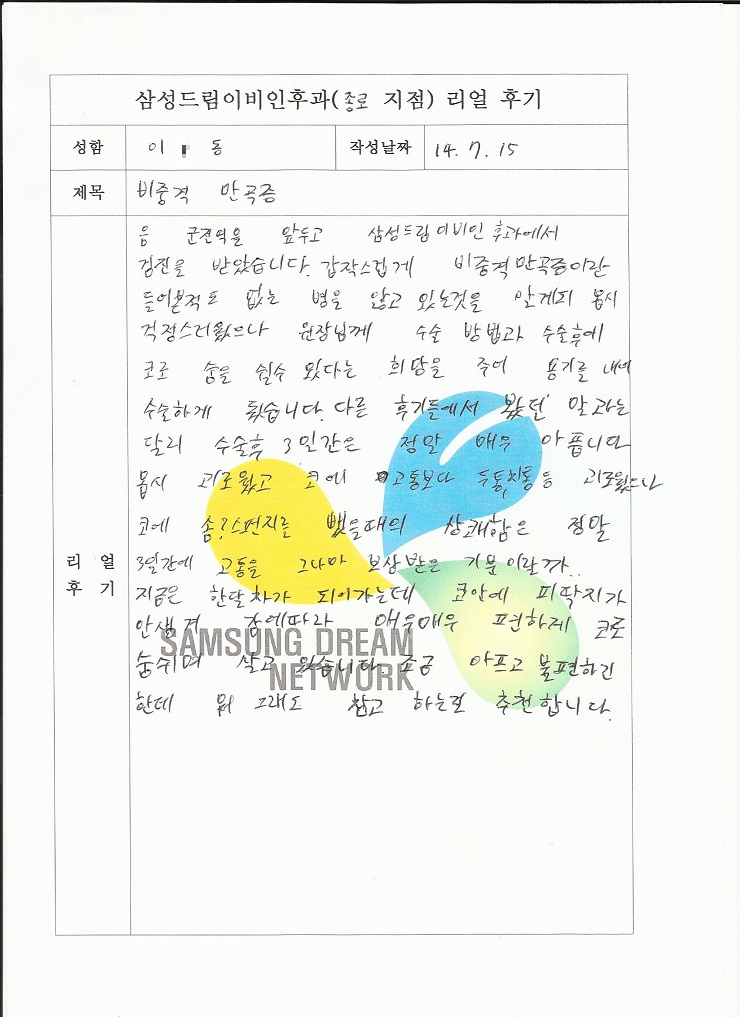 삼성드림이비인후과(종로 지점) 리얼 후기
성함 이 동 작성날짜 14. 7. 15
제목 비중격 만곡증
리 얼
후 기
음 군전역을 앞두고 삼성드림이비인후과에서
검진을 받았습니다. 갑작스럽게 비중격만곡증이란
들어본적도 없는 병을 앓고 있는것을 알게되 몹시
걱정스러웠으나 원장님께 수술 방법과 수술후에
코로 숨을 쉴수 있다는 희망을 주어 용기를 내어
수술하게 됬습니다. 다른 후기들에서 봤던 말과는
달리 수술후 3일간은 정말 매우 아픕니다
몹시 괴로웠고 코에 고통보다 두통,치통등 괴로웠으나
코에 솜?스펀지를 뺐을때의 상쾌함은 정말
3일간에 고통을 그나마 보상받은 기분이랄까..
지금은 한달차가 되어가는데 코안에 피딱지가
안생겨 감에따라 매우매우 편하게 코로
숨쉬며 살고 있습니다 조금 아프고 불편하긴
한데 뭐 그래도 참고 하는걸 추천합니다.
SAMSUNG DREAM
NETWORK